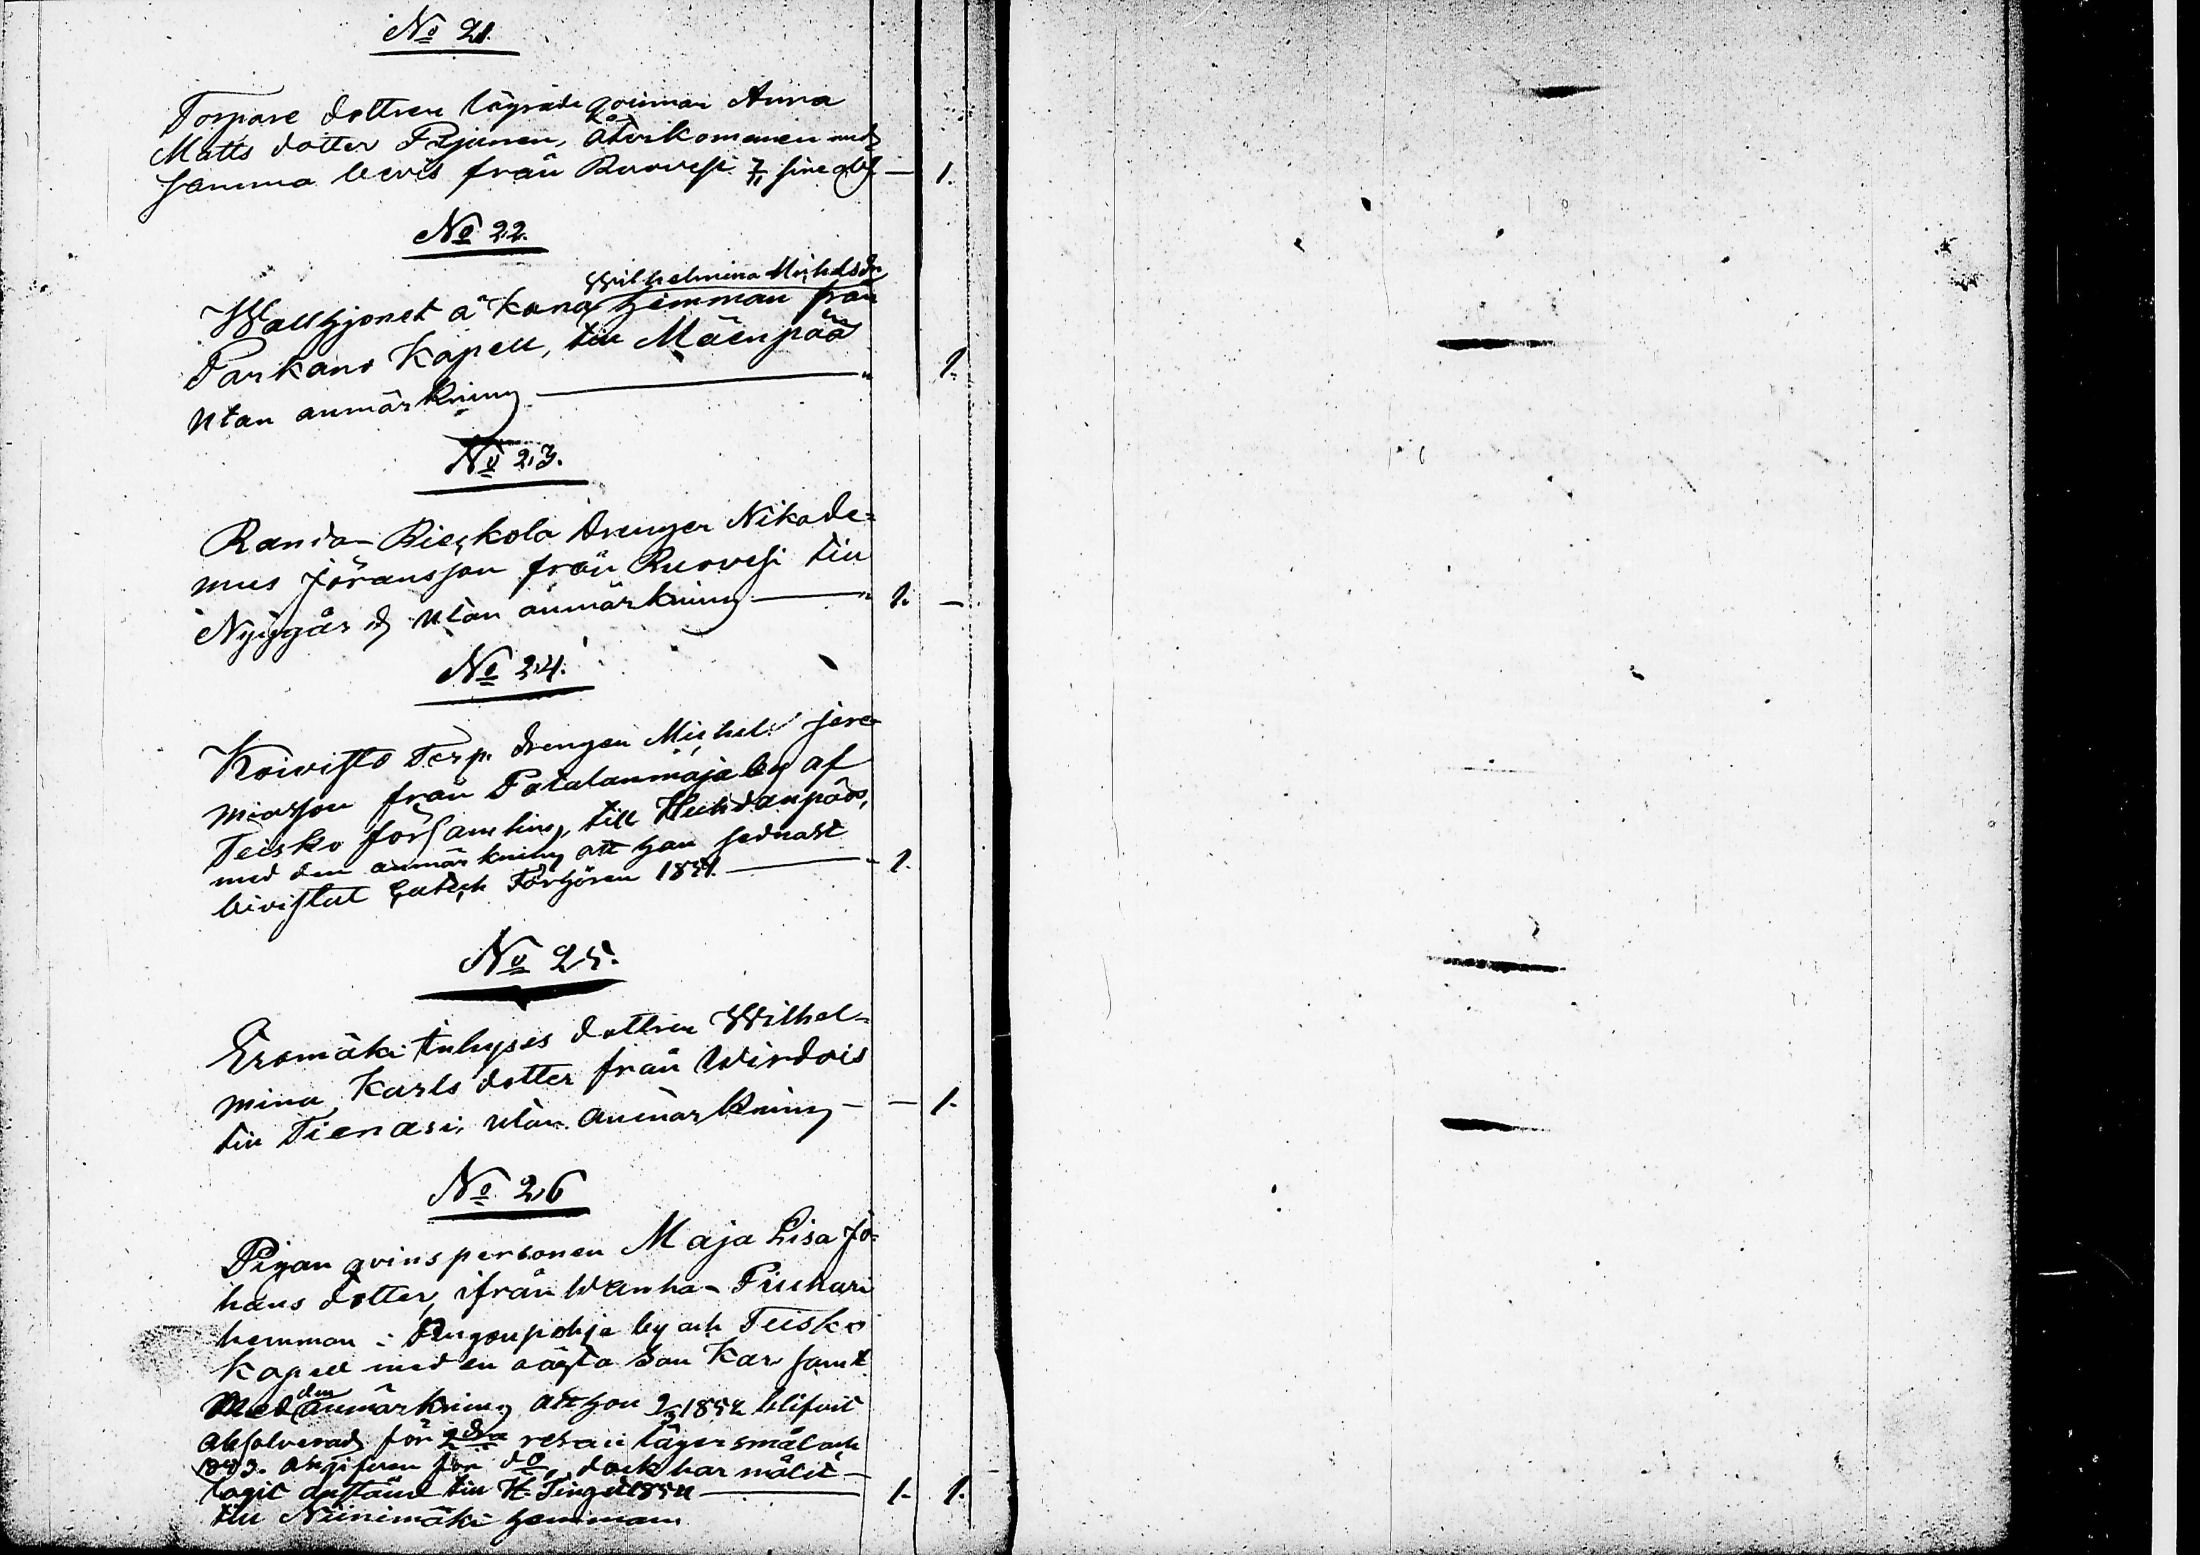 No 21.
Torpare dottren lägrade qvinnan Anna
Matts dotter Pajunen, har återkommen med
samma bevis från Ruovesi 7/11 sine
— 1.
No 22.
Wilhelmina Michelsdr
Wallhjonet å Kona hemman från
Parkano Kapell, till Mäenpää
utan anmärkning — " 1.
No 23.
Randa-Bieskola drengen Nikode=
mus Jöransson från Ruovesi till
Nygård utan anmärkning — " 1. —
No 24.
Koivisto Torp. drengen Michel Jere
miasson från Patalanmaja by af
Teisko församling, till Huhdanpää,
med den anmärkning att han sednast
bivistat Catech Förhören 1851. — 1.
No 25.
Eromäki Inhyses dottren Wilhel=
mina Karls dotter från Wirdois
till Tienasi, utan anmärkning — — 1.
No 26
Pigan qvinspersonen Maja Lisa Jo=
hans dotter, ifrån Wanha-
hemman i by och Teisko
Kapell med en oäkta son Karl samt
Med den anmärkning att hon 1852 blifvit
absolverad för 2dra resan lägersmål och
1853. angifven för do, dock har målet —
tagit anstånd till H. Tinget 1854 — 1. 1.
till Niinimäki hemman